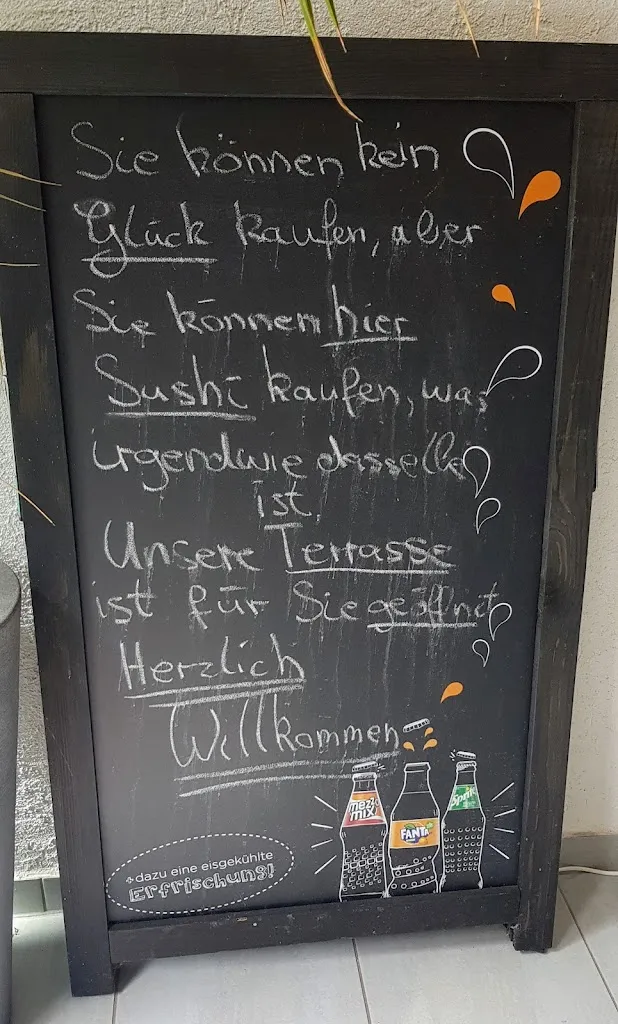 Sie können kein
Glück kaufen, aber
Sie können hier
Sushi kaufen, was
irgendwie dasselbe
ist.
Unsere Terrasse
ist für Sie geöffnet
Herzlich
Willkommen
mezzo mix
FANTA
Sprite
+dazu eine eisgekühlte
Erfrischung!